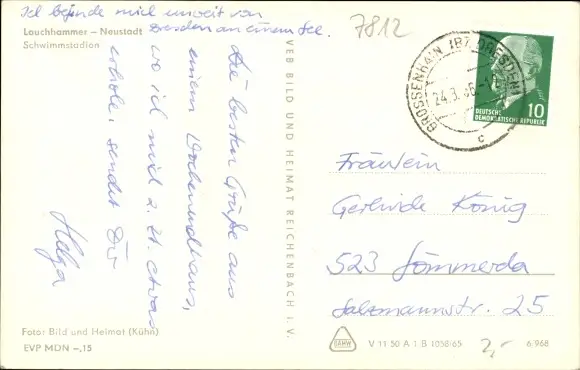 Ich befinde mich unweit von
Dresden an einem See.
Lauchhammer – Neustadt
Schwimmstadion
Die besten Grüße aus
einem Wochenendhaus,
wo ich mich z. Zt. etwas
erhole, sendet Dir
Helga
Foto: Bild und Heimat (Kühn)
EVP MDN –,15
VEB BILD UND HEIMAT REICHENBACH I. V.
7812
GROSSENHAIN (BZ. DRESDEN)
24.3.66.-1
c
10
DEUTSCHE
DEMOKRATISCHE REPUBLIK
Fräulein
Gerlinde König
523 Sömmerda
Salzmannstr. 25
V 11 50 A 1 B 1058/65
2,-
6/968